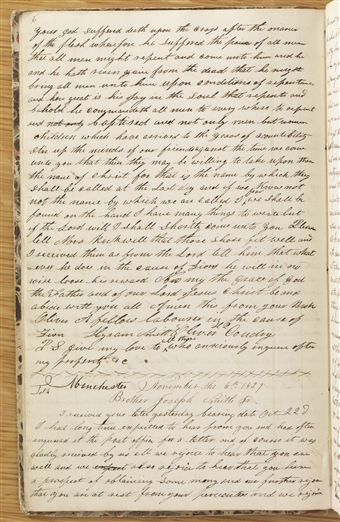 6
your god suffered death upon the cross after the manner
of the flesh wherefore he suffered the pains of all men
that all men might repent and come unto him and be
and he hath risen again from the dead that he might
bring all men unto him upon conditions of repentance
and how great is his joy in the soul that repents and
behold he commandeth all men to every where to repent
and not only baptised and not only men but women
children which have arrived to the years of accountability
stir up the minds of our friends against the time we come
unto you that then they may be willing to take upon them
the name of christ for that is the name by which they
shall be called at the last day and if we know not
not the name by which we are called I we shall be
found on the hand I have many things to write but
if the Lord will I shall shortly come unto you Please
tell Mrs Rockwell that those shoes fit well and
I received them as from the Lord tell him that what
ever he does in the cause of Zion he will in no
wise loose his reward Now may the grace of God
the Father and of our Lord Jesus Christ be and
abide with you all Amen this from your
fellow labourers in the cause of
Zion Hyram Smith Oliver Cowdery
P S give my love to all those who anxiously inquire after
my prosperity &c

Manchester November the 6th 1829
Brother Joseph Smith Jr
I received your letter yesterday bearing date Oct 22d
I has long time expected to hear from you and has often
enquired at the post office for a letter and of course it was
gladly received by us all we rejoice to hear that you are
well and we also rejoice to hear that you have
a prospect of obtaining some money and we further rejoice
that you are at rest from your persecutors and we rejoice